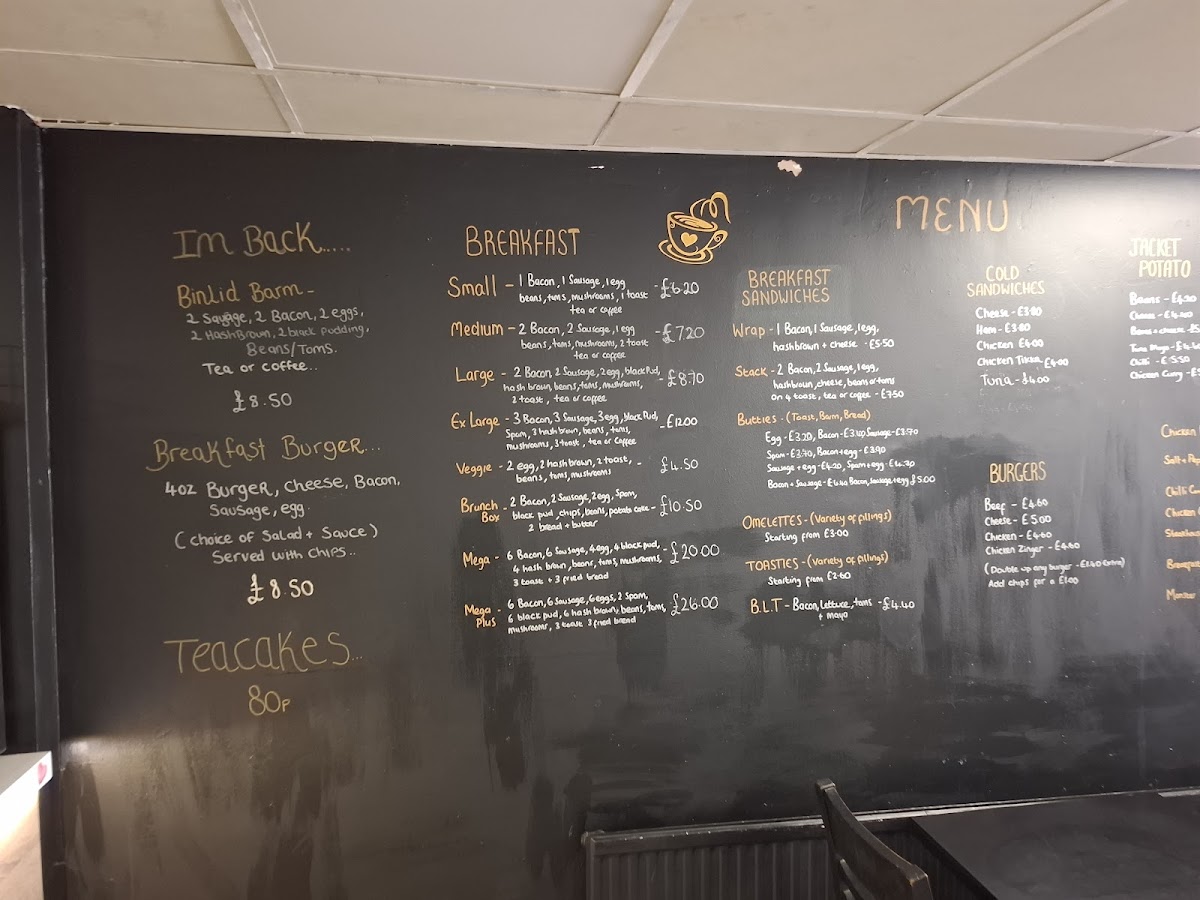 Im Back.....
Binlid Barm -
2 Sausage, 2 Bacon, 2 eggs,
2 Hash Brown, 2 black pudding,
Beans/Toms.
Tea or coffee..
£8.50
Breakfast Burger...
4oz Burger, cheese, Bacon,
Sausage, egg.
(choice of Salad + Sauce)
Served with chips..
£8.50
Teacakes...
80p
BREAKFAST
Small - 1 Bacon, 1 Sausage, 1 egg
beans, toms, mushrooms, 1 toast
tea or coffee
- £6.20
Medium - 2 Bacon, 2 Sausage, 1 egg
beans, toms, mushrooms, 2 toast
tea or coffee
- £7.20
Large - 2 Bacon, 2 Sausage, 2 egg, black pud,
hash brown, beans, toms, mushrooms,
2 toast, tea or coffee
- £8.70
Ex Large - 3 Bacon, 3 Sausage, 3 egg, black pud,
Spam, 3 hash brown, beans, toms,
mushrooms, 3 toast, tea or coffee
- £12.00
Veggie - 2 egg, 2 hash brown, 2 toast,
beans, toms, mushrooms
- £4.50
Brunch Box - 2 Bacon, 2 Sausage, 2 egg, Spam,
black pud, chips, beans, potato cake
2 bread + butter
- £10.50
Mega - 6 Bacon, 6 Sausage, 4 egg, 4 black pud,
4 hash brown, beans, toms, mushrooms,
3 toast + 3 fried bread
- £20.00
Mega Plus - 6 Bacon, 6 Sausage, 6 eggs, 2 Spam,
6 black pud, 6 hash brown, beans, toms,
mushrooms, 3 toast 3 fried bread
£26.00
MENU
BREAKFAST
SANDWICHES
Wrap - 1 Bacon, 1 Sausage, 1 egg,
hashbrown + cheese - £5.50
Stack - 2 Bacon, 2 Sausage, 1 egg,
hashbrown, cheese, beans or toms
on 4 toast, tea or coffee - £7.50
Butties - (Toast, Barm, Bread)
Egg - £3.20, Bacon - £3.40 Sausage - £3.70
Spam - £3.70, Bacon + egg - £3.90
Sausage + egg - £4.20, Spam + egg £4.70
Bacon + Sausage - £4.40 Bacon, Sausage + egg £5.00
OMELETTES - (Variety of fillings)
Starting from £3.00
TOASTIES - (Variety of fillings)
Starting from £2.60
B.L.T - Bacon, Lettuce, toms - £4.40
+ mayo
COLD
SANDWICHES
Cheese - £3.80
Ham - £3.80
Chicken £4.00
Chicken Tikka £4.00
Tuna - £4.00
BURGERS
Beef - £4.60
Cheese - £5.00
Chicken - £4.60
Chicken Zinger - £4.60
(Double up any burger - £1.40 extra)
Add chips for a £1.00
JACKET
POTATO
Beans - £4.20
Cheese -
Beans + cheese -
Tuna Mayo -
Chilli - £5.50
Chicken Curry -
Chicken
Salt +
Chilli
Chicken
Monster